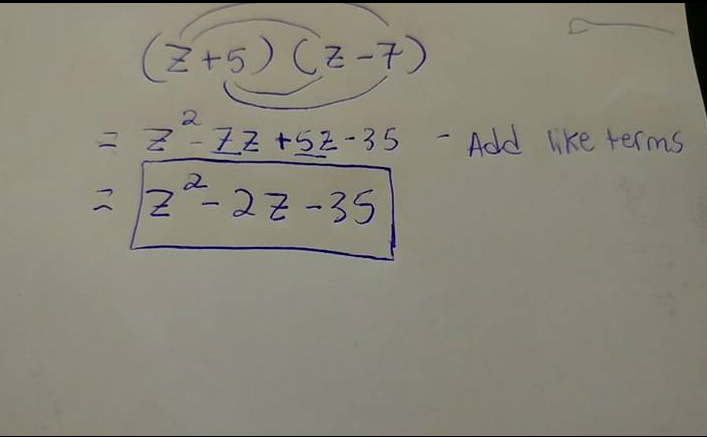 (z+5)(z-7)
= z² - 7z + 5z - 35 - Add like terms
= z² - 2z - 35